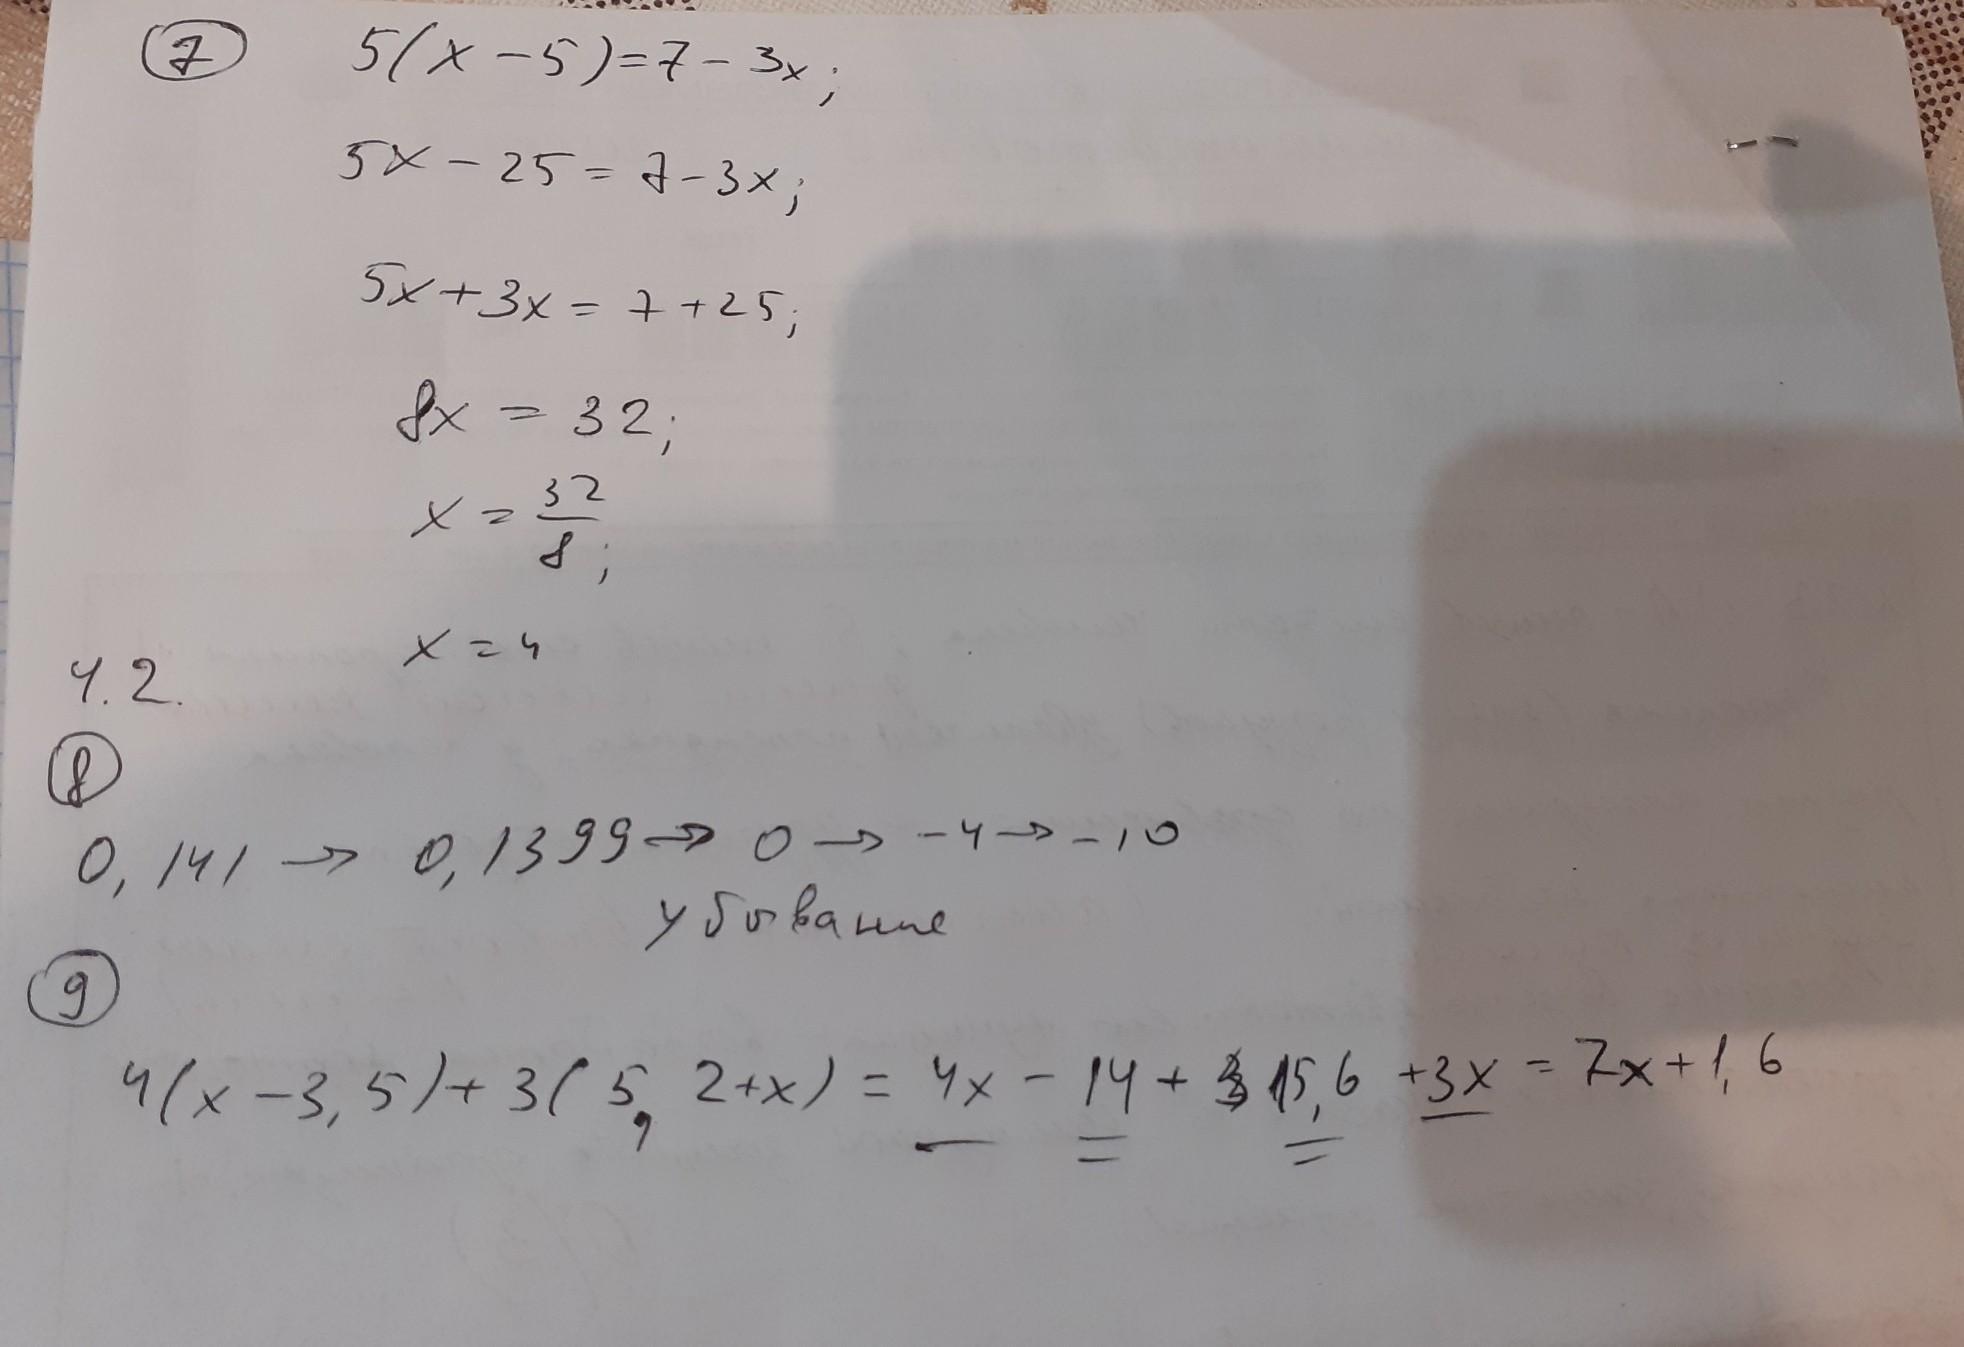 7 5(x-5)=7-3x;
5x-25=7-3x;
5x+3x=7+25;
8x=32;
x=32/8;
x=4
Ч.2.
8
0,141→0,1399→0→-4→-10
убывание
9
4(x-3,5)+3(5,2+x)=4x-14+15,6+3x=7x+1,6